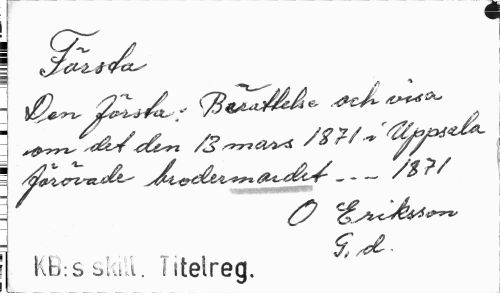 Första
Den första: Berättelse och visa
om det den 13 mars 1871 i Uppsala
förövade brodermordet --- 1871
O Eriksson
G. d.
KB:s skill. Titelreg.